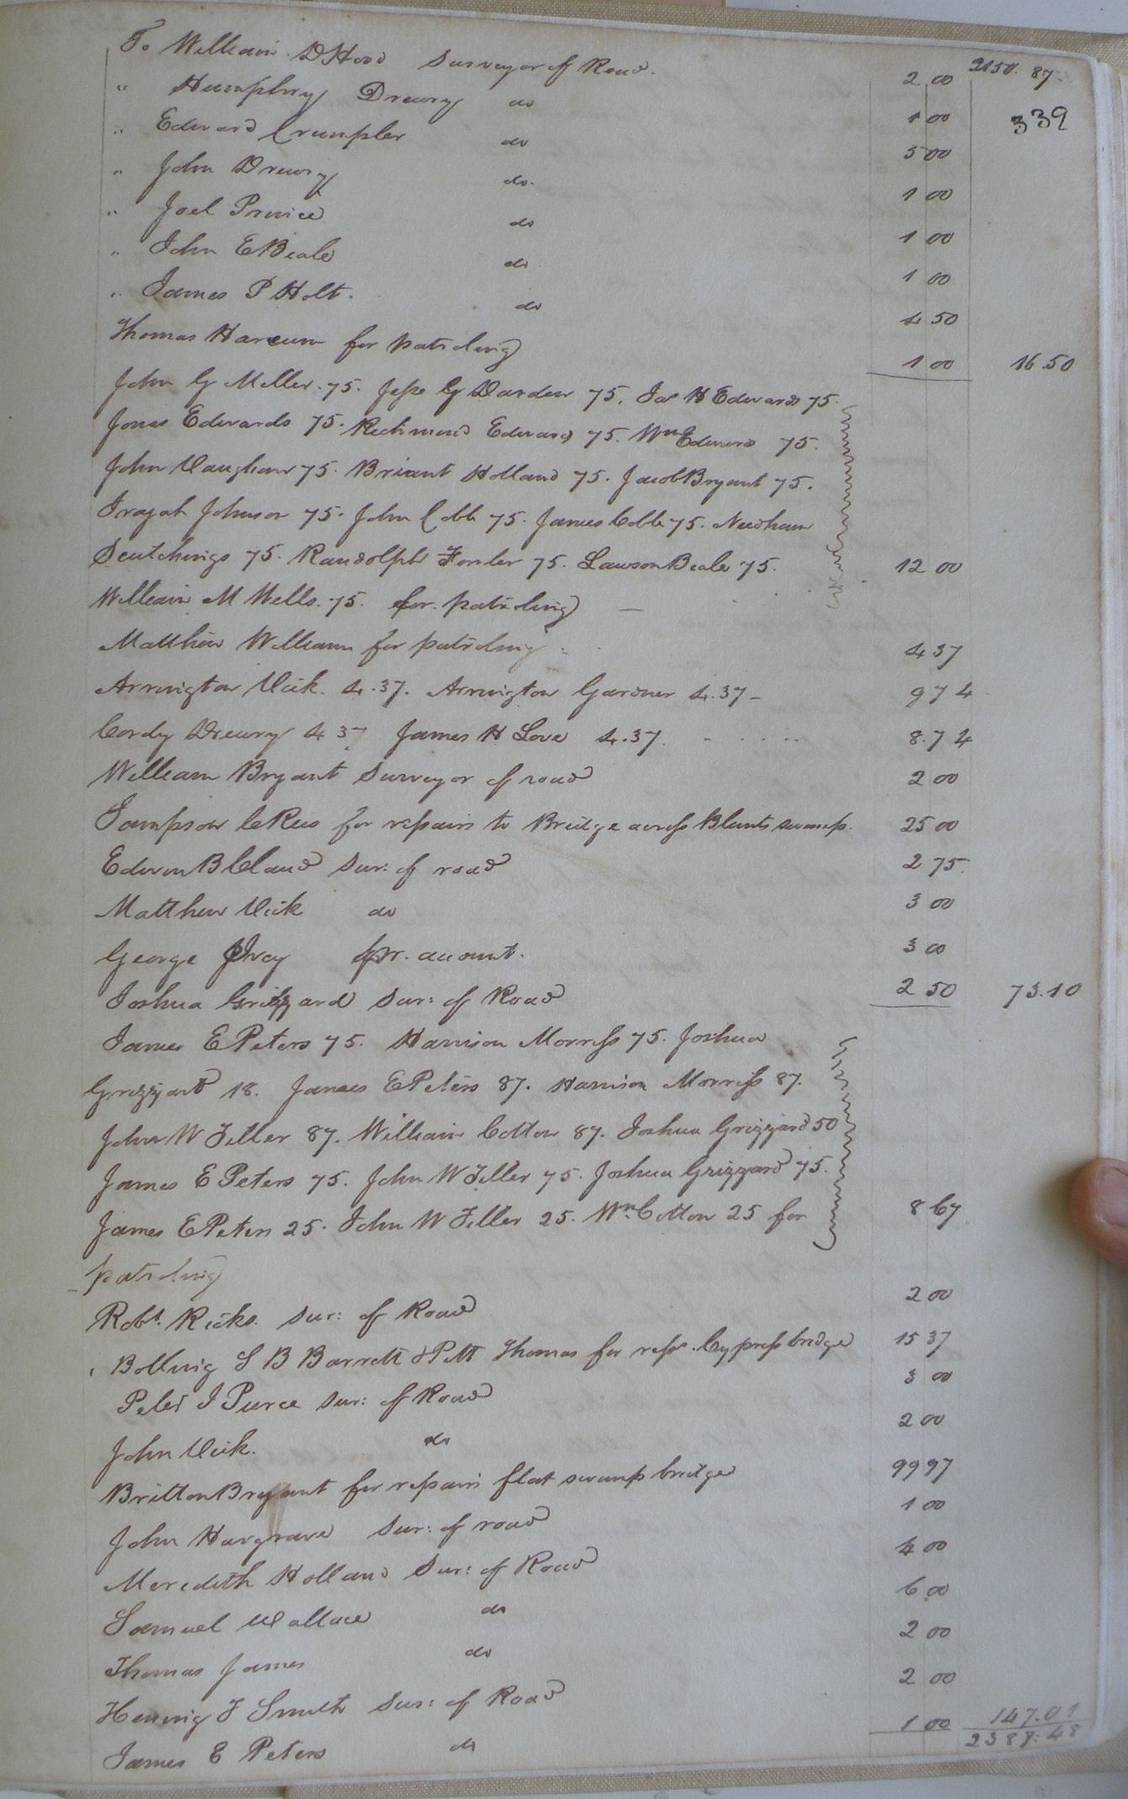 2150. 87.
339
To William D Hood Surveyor of Road. 2 00
" Humphry Drewry do 1 00
" Edward Crumpler do 5 00
" John Drewry do. 1 00
" Joel Prince do 1 00
" John E Beale do 1 00
" James P Holt. do 4 50
Thomas Harcum for patroling 1 00 16.50
John G Miller. 75. Jesse G Darden 75. Jas H Edwards 75.
Jonas Edwards 75. Richmond Edwards 75. Wm Edwards 75.
John Vaughan 75. Briant Holland 75. Jacob Bryant 75.
Johnson 75. John Cobb 75. James Cobb 75. Needham
Scutchings 75. Randolph Fowler 75. Lawson Beale 75. 12 00
William M Wells. 75. for patroling
Matthew Williams for patroling 4 37
Arrington Vick. 4.37. Arrington Gardner 4.37 9 7 4
Cordy Drewry 4 37 James H Love 4.37. 8.7 4
William Bryant Surveyor of road 2 00
Sampson for repairs to Bridge across Blunts swamp. 25 00
Edwin B Claud Sur: of road 2 75
Matthew Vick do 3 00
George Ivey pr. account. 3 00
Joshua Grizzard Sur: of Road 2 50 73.10
James E Peters 75. Harrison Morriss 75. Joshua
Grizzard 18. James E Peters 87. Harrison Morriss 87.
John W Filler 87. William Cotton 87. Joshua Grizzard 50
James E Peters 75. John W Filler 75. Joshua Grizzard 75.
James E Peters 25. John W Filler 25. Wm Cotton 25 for 8 67
patroling
Robt. Ricks. Sur: of Road 2 00
Bolling S B Barrett & Pett Thomas for reps. Cypress bridge 15 37
Peter J Pierce Sur: of Road 3 00
John Vick. do 2 00
Britton Bryant for repairs flat swamp bridge 99 97
John Hargrave Sur: of road 1 00
Meredith Holland Sur: of Road 4 00
Samuel Wallace do 6 00
Thomas James do 2 00
Henning T Smith Sur: of Road 2 00
James E Peters do 1 00 147.01
2387.48